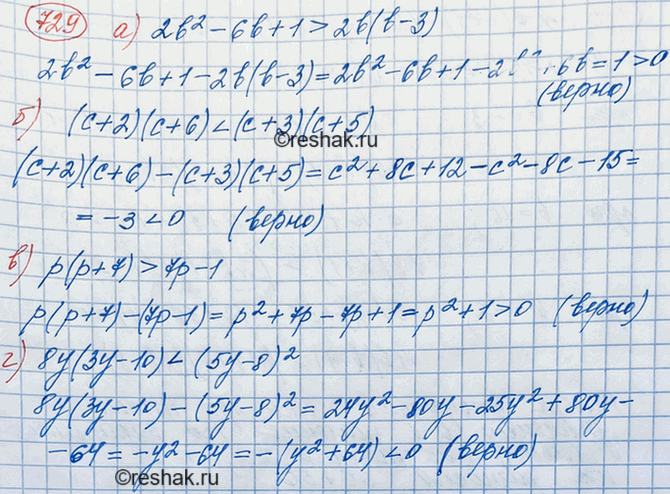 729 а) 2b² - 6b + 1 > 2b(b-3)
2b² - 6b + 1 - 2b(b-3) = 2b² - 6b + 1 - 2b² + 6b = 1 > 0
(верно)
б) (c+2)(c+6) < (c+3)(c+5)
(c+2)(c+6) - (c+3)(c+5) = c² + 8c + 12 - c² - 8c - 15 =
= -3 < 0 (верно)
в) p(p+7) > 7p - 1
p(p+7) - (7p-1) = p² + 7p - 7p + 1 = p² + 1 > 0 (верно)
г) 8y(3y-10) < (5y-8)²
8y(3y-10) - (5y-8)² = 24y² - 80y - 25y² + 80y -
- 64 = -y² - 64 = -(y² + 64) < 0 (верно)
©reshak.ru
©reshak.ru